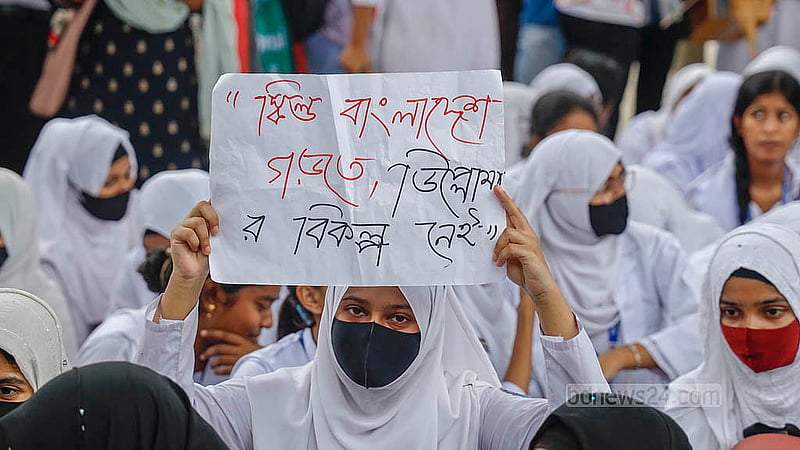 “স্কিল্ড বাংলাদেশ
গড়তে, ডিপ্লোমা
র বিকল্প নেই”
bdnews24.com